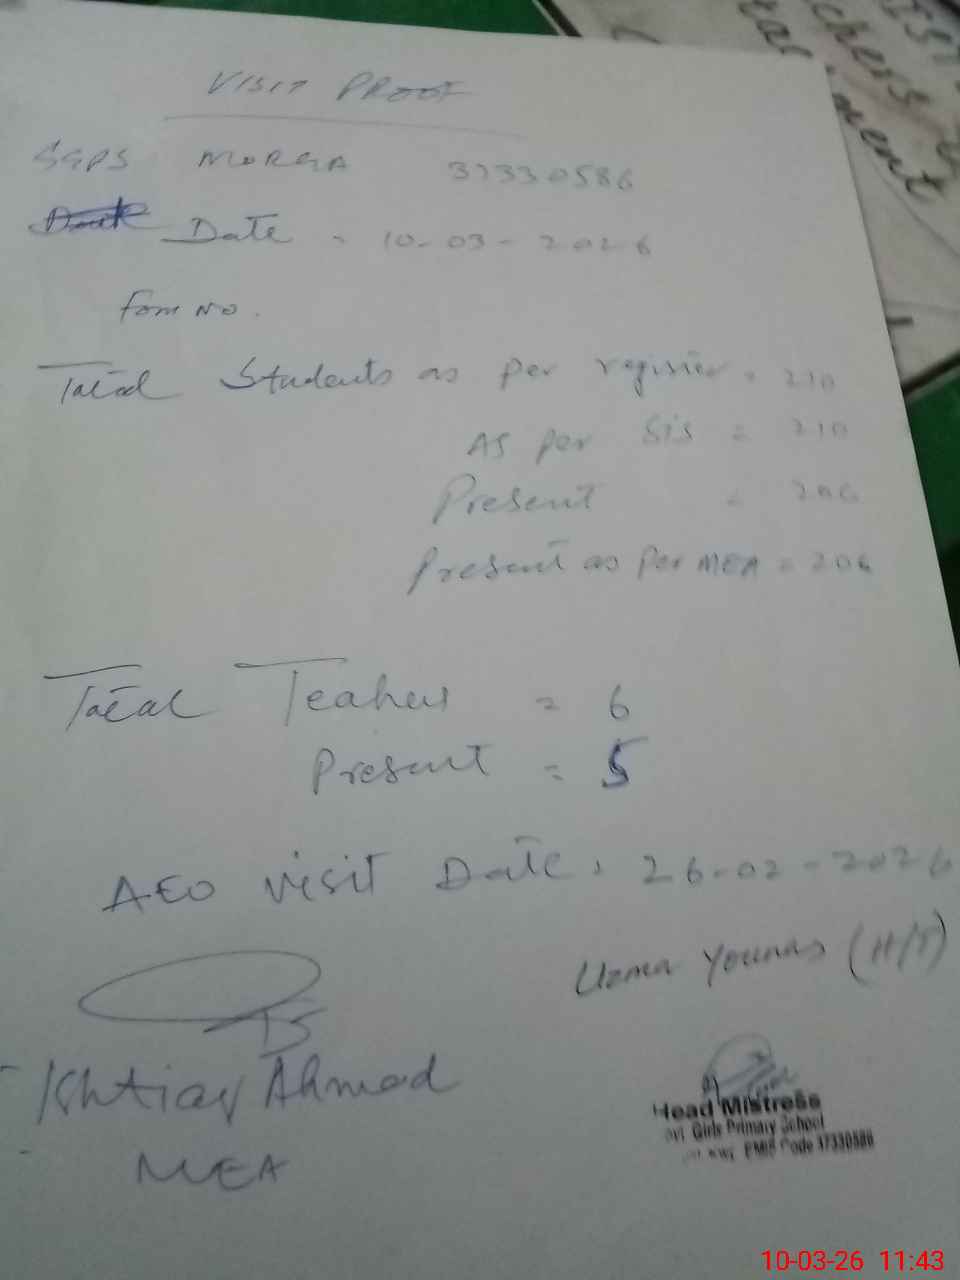 VISIT PROOF
GGPS MURGA 37330586
Date = 10-03-2026
Form No.
Total Students as per register = 210
As per SIS = 210
Present = 206
Present as per MEA = 206
Total Teahers = 6
Present = 5
AEO visit Date: 26-02-2026
Uzma Younas (H/T)
Ishtiaq Ahmad
MEA
Head Mistress
Girls Primary School
EMIS Code 37330586
chers
ment
10-03-26 11:43